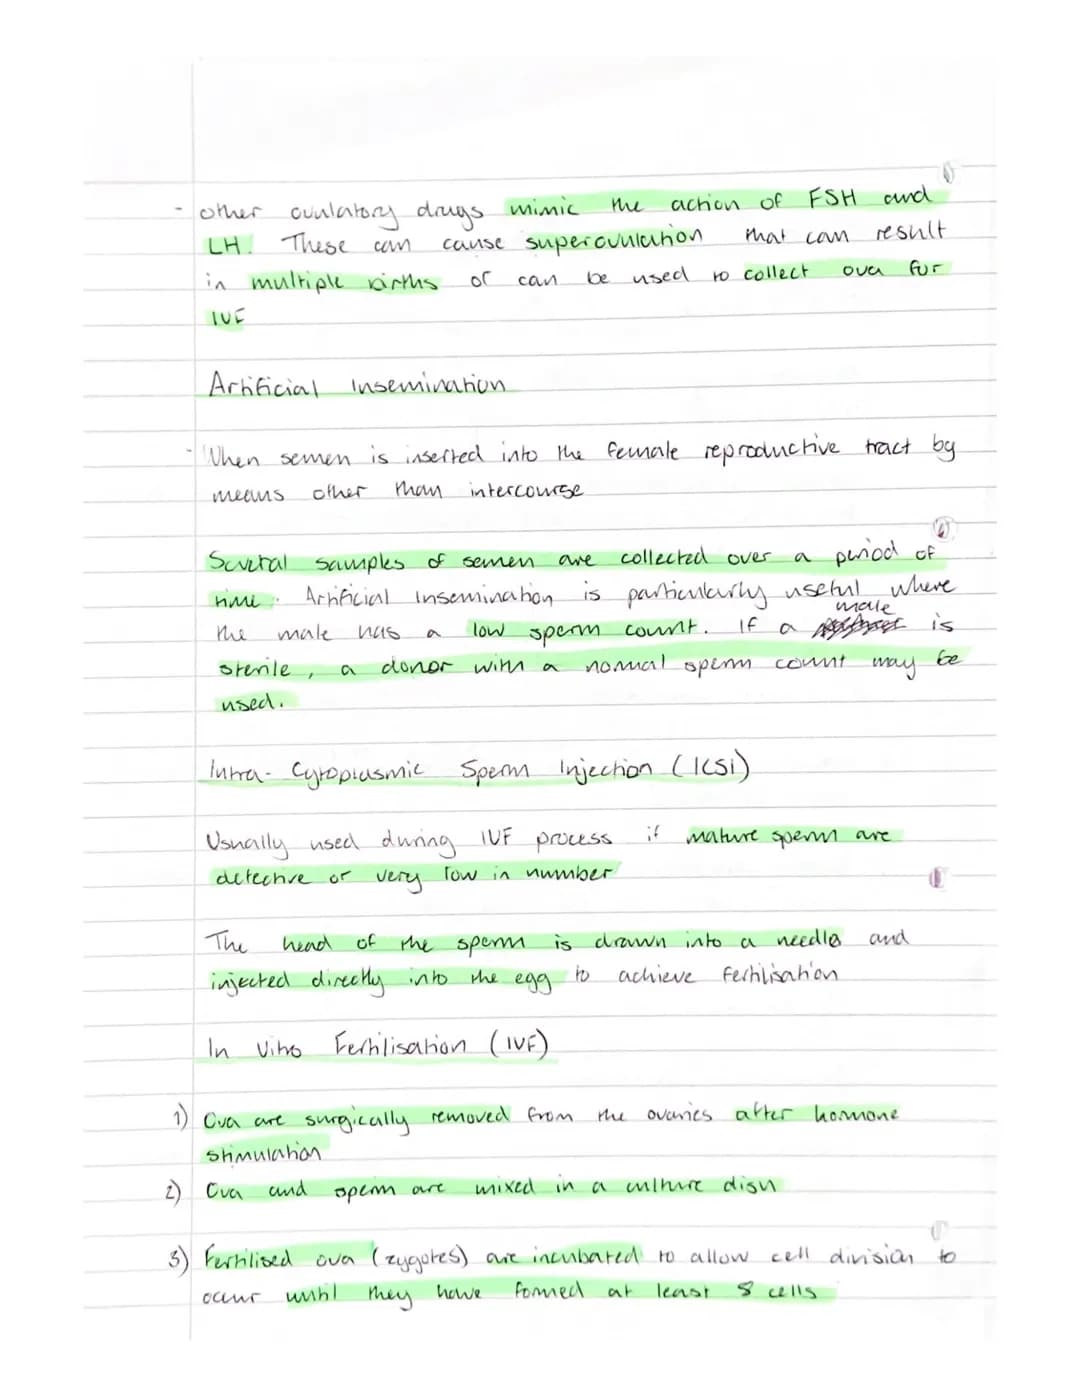 - other ovulatory drugs mimic the action of FSH and
LH. These can cause superovulation that can result
in multiple births or can be used to collect ova for
IVF
Artificial Insemination
- When semen is inserted into the female reproductive tract by
means other than intercourse
Several samples of semen are collected over a period of
time. Artificial insemination is particularly useful where
the male has a low sperm count. If a male is
sterile, a donor with a normal sperm count may be
used.
Intra-Cytoplasmic Sperm Injection (ICSI)
Usually used during IVF process if mature sperm are
defective or very low in number
The head of the sperm is drawn into a needle and
injected directly into the egg to achieve fertilisation
In Vitro Fertilisation (IVF)
1) Ova are surgically removed from the ovaries after hormone
stimulation
2) Ova and sperm are mixed in a culture dish
3) Fertilised ova (zygotes) are incubated to allow cell division to
occur until they have formed at least 8 cells